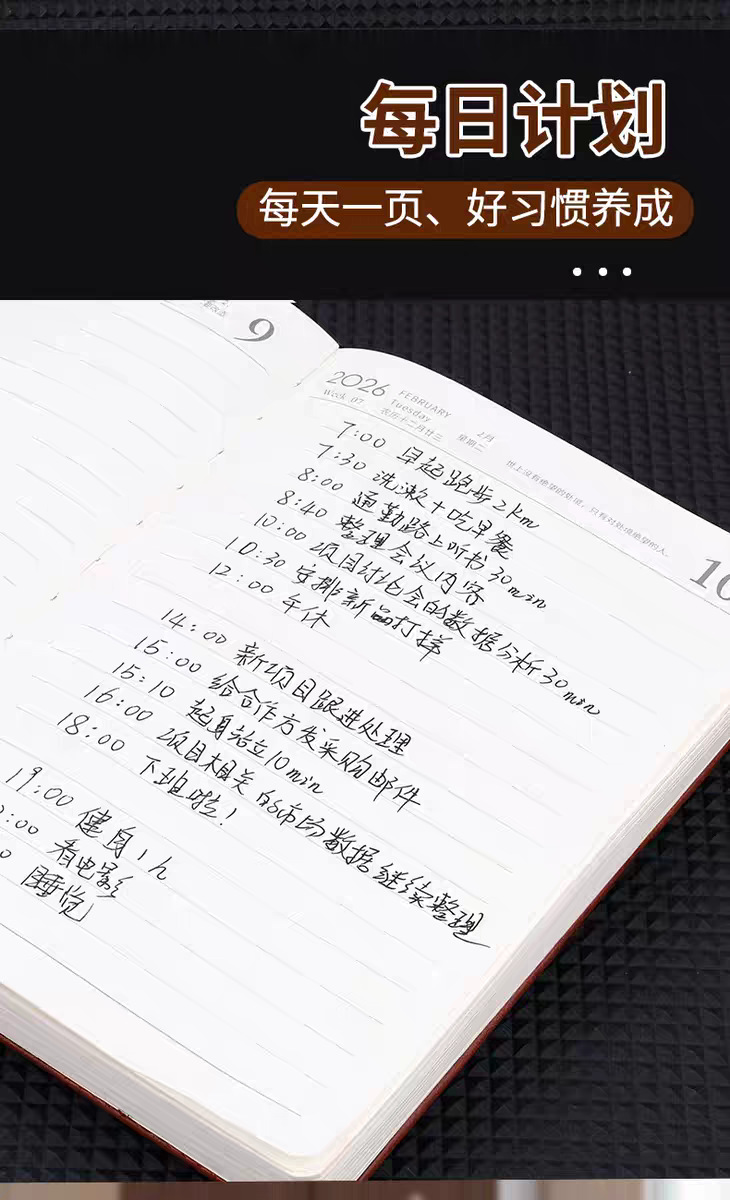 每日计划
每天一页、好习惯养成
9
2026 FEBRUARY 2月
Week 07 Tuesday 星期二
农历十二月廿三
世上没有绝望的处境，只有对处境绝望的人。
10
7:00 早起跑步2km
7:30 洗漱+吃早餐
8:00 通勤路上听书30min
8:40 整理会议内容
10:00 项目讨论会的数据分析30min
10:30 安排新品打样
12:00 午休
14:00 新项目跟进处理
15:00 给合作方发采购邮件
15:10 起身站立10min
16:00 项目相关的市场数据继续整理
18:00 下班啦！
19:00 健身1h
:00 看电影
0 睡觉